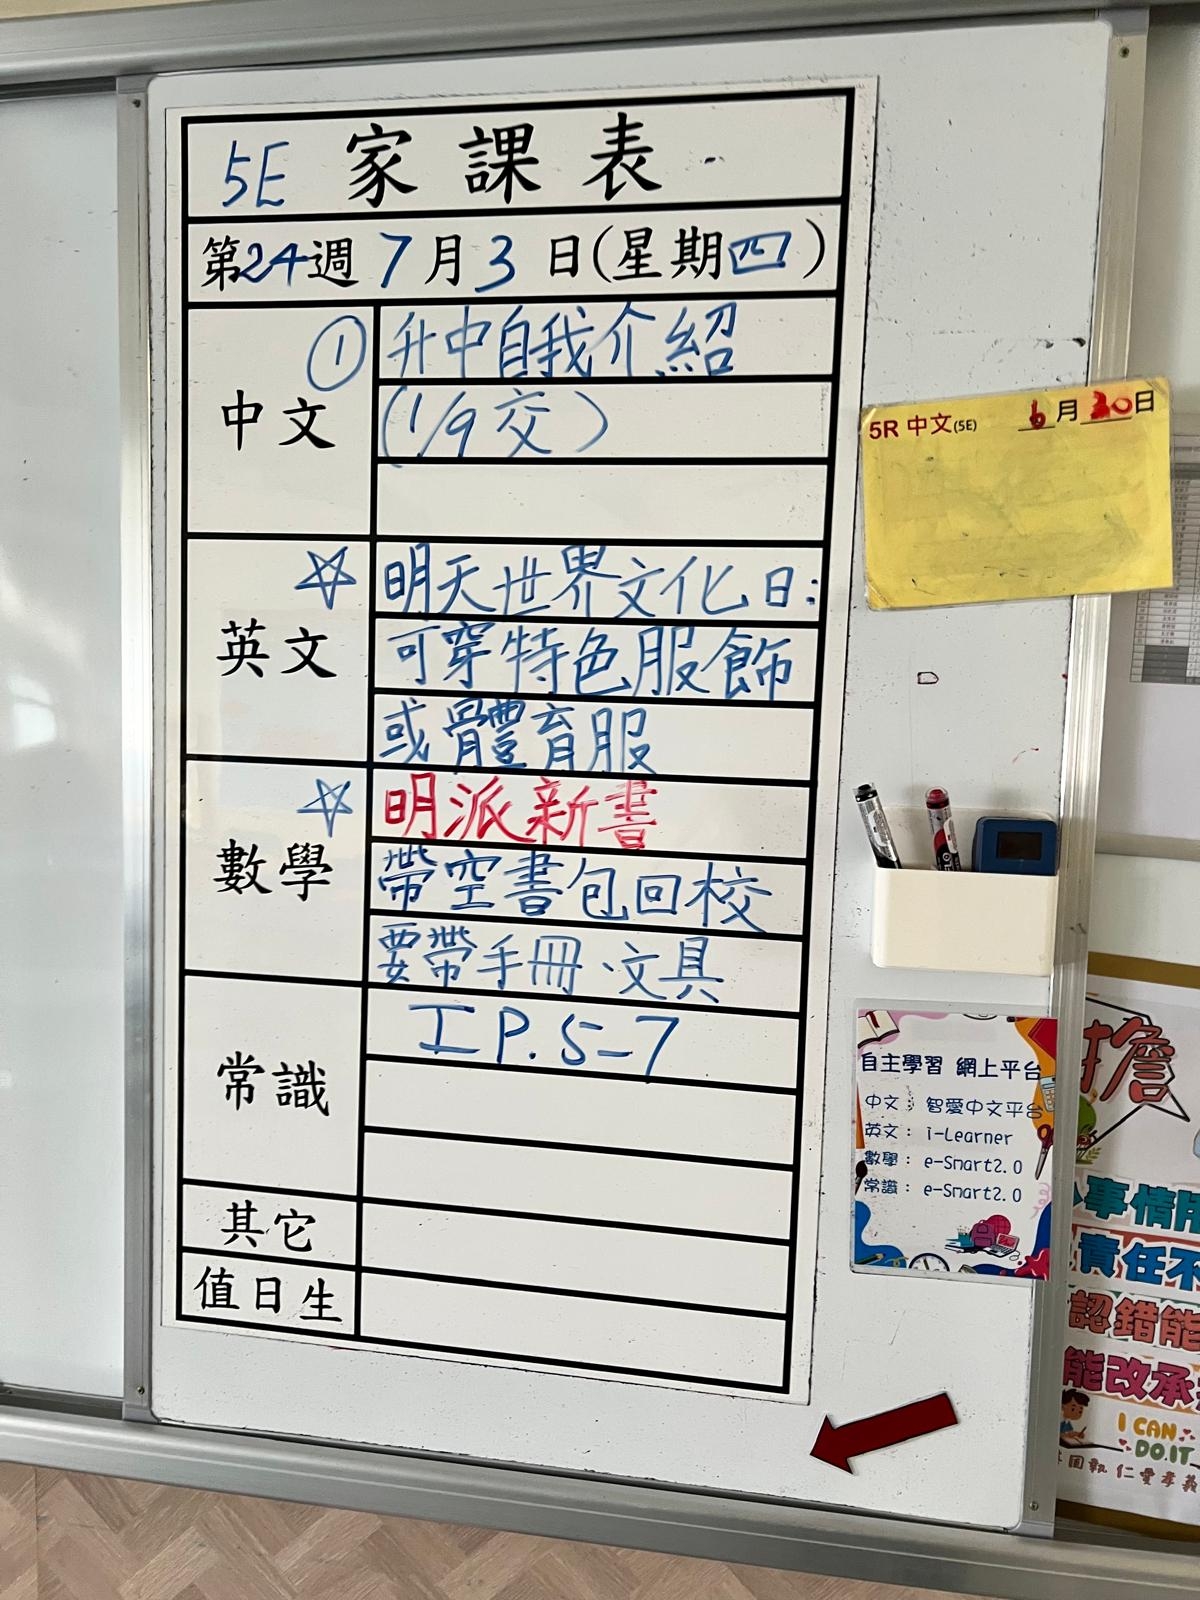 5E 家課表
第24週 7月3日(星期四)
中文
① 升中自我介紹
(1/9交)
英文
☆ 明天世界文化日:
可穿特色服飾
或體育服
數學
☆ 明派新書
帶空書包回校
要帶手冊、文具
常識
工 P.5-7
其它
值日生
5R 中文(5E) 6月30日
自主學習 網上平台
中文： 智愛中文平台
英文： i-Learner
數學： e-Smart2.0
常識： e-Smart2.0
擔
事情
責任不
認錯能
能改承
I CAN
DO IT
仁愛孝義